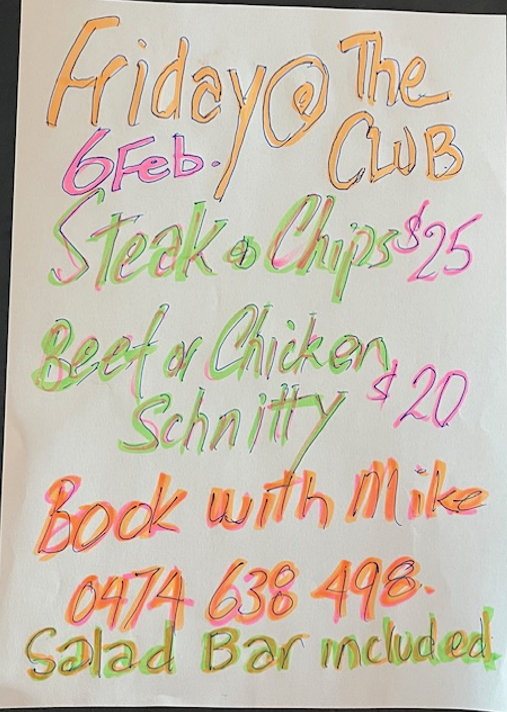 Friday @ The
6 Feb. CLUB
Steak & Chips $25
Beef or Chicken
Schnitty $20
Book with Mike
0474 638 498.
Salad Bar included.